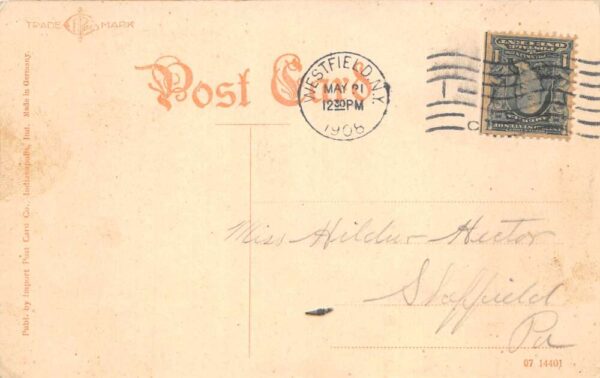 TRADE MARK
Post Card
WESTFIELD, N.Y.
MAY 21
12 30 PM
1908
Publ. by Import Post Card Co., Indianapolis, Ind. Made in Germany.
Miss Hildur Hector
Sheffield
Pa
07 14401